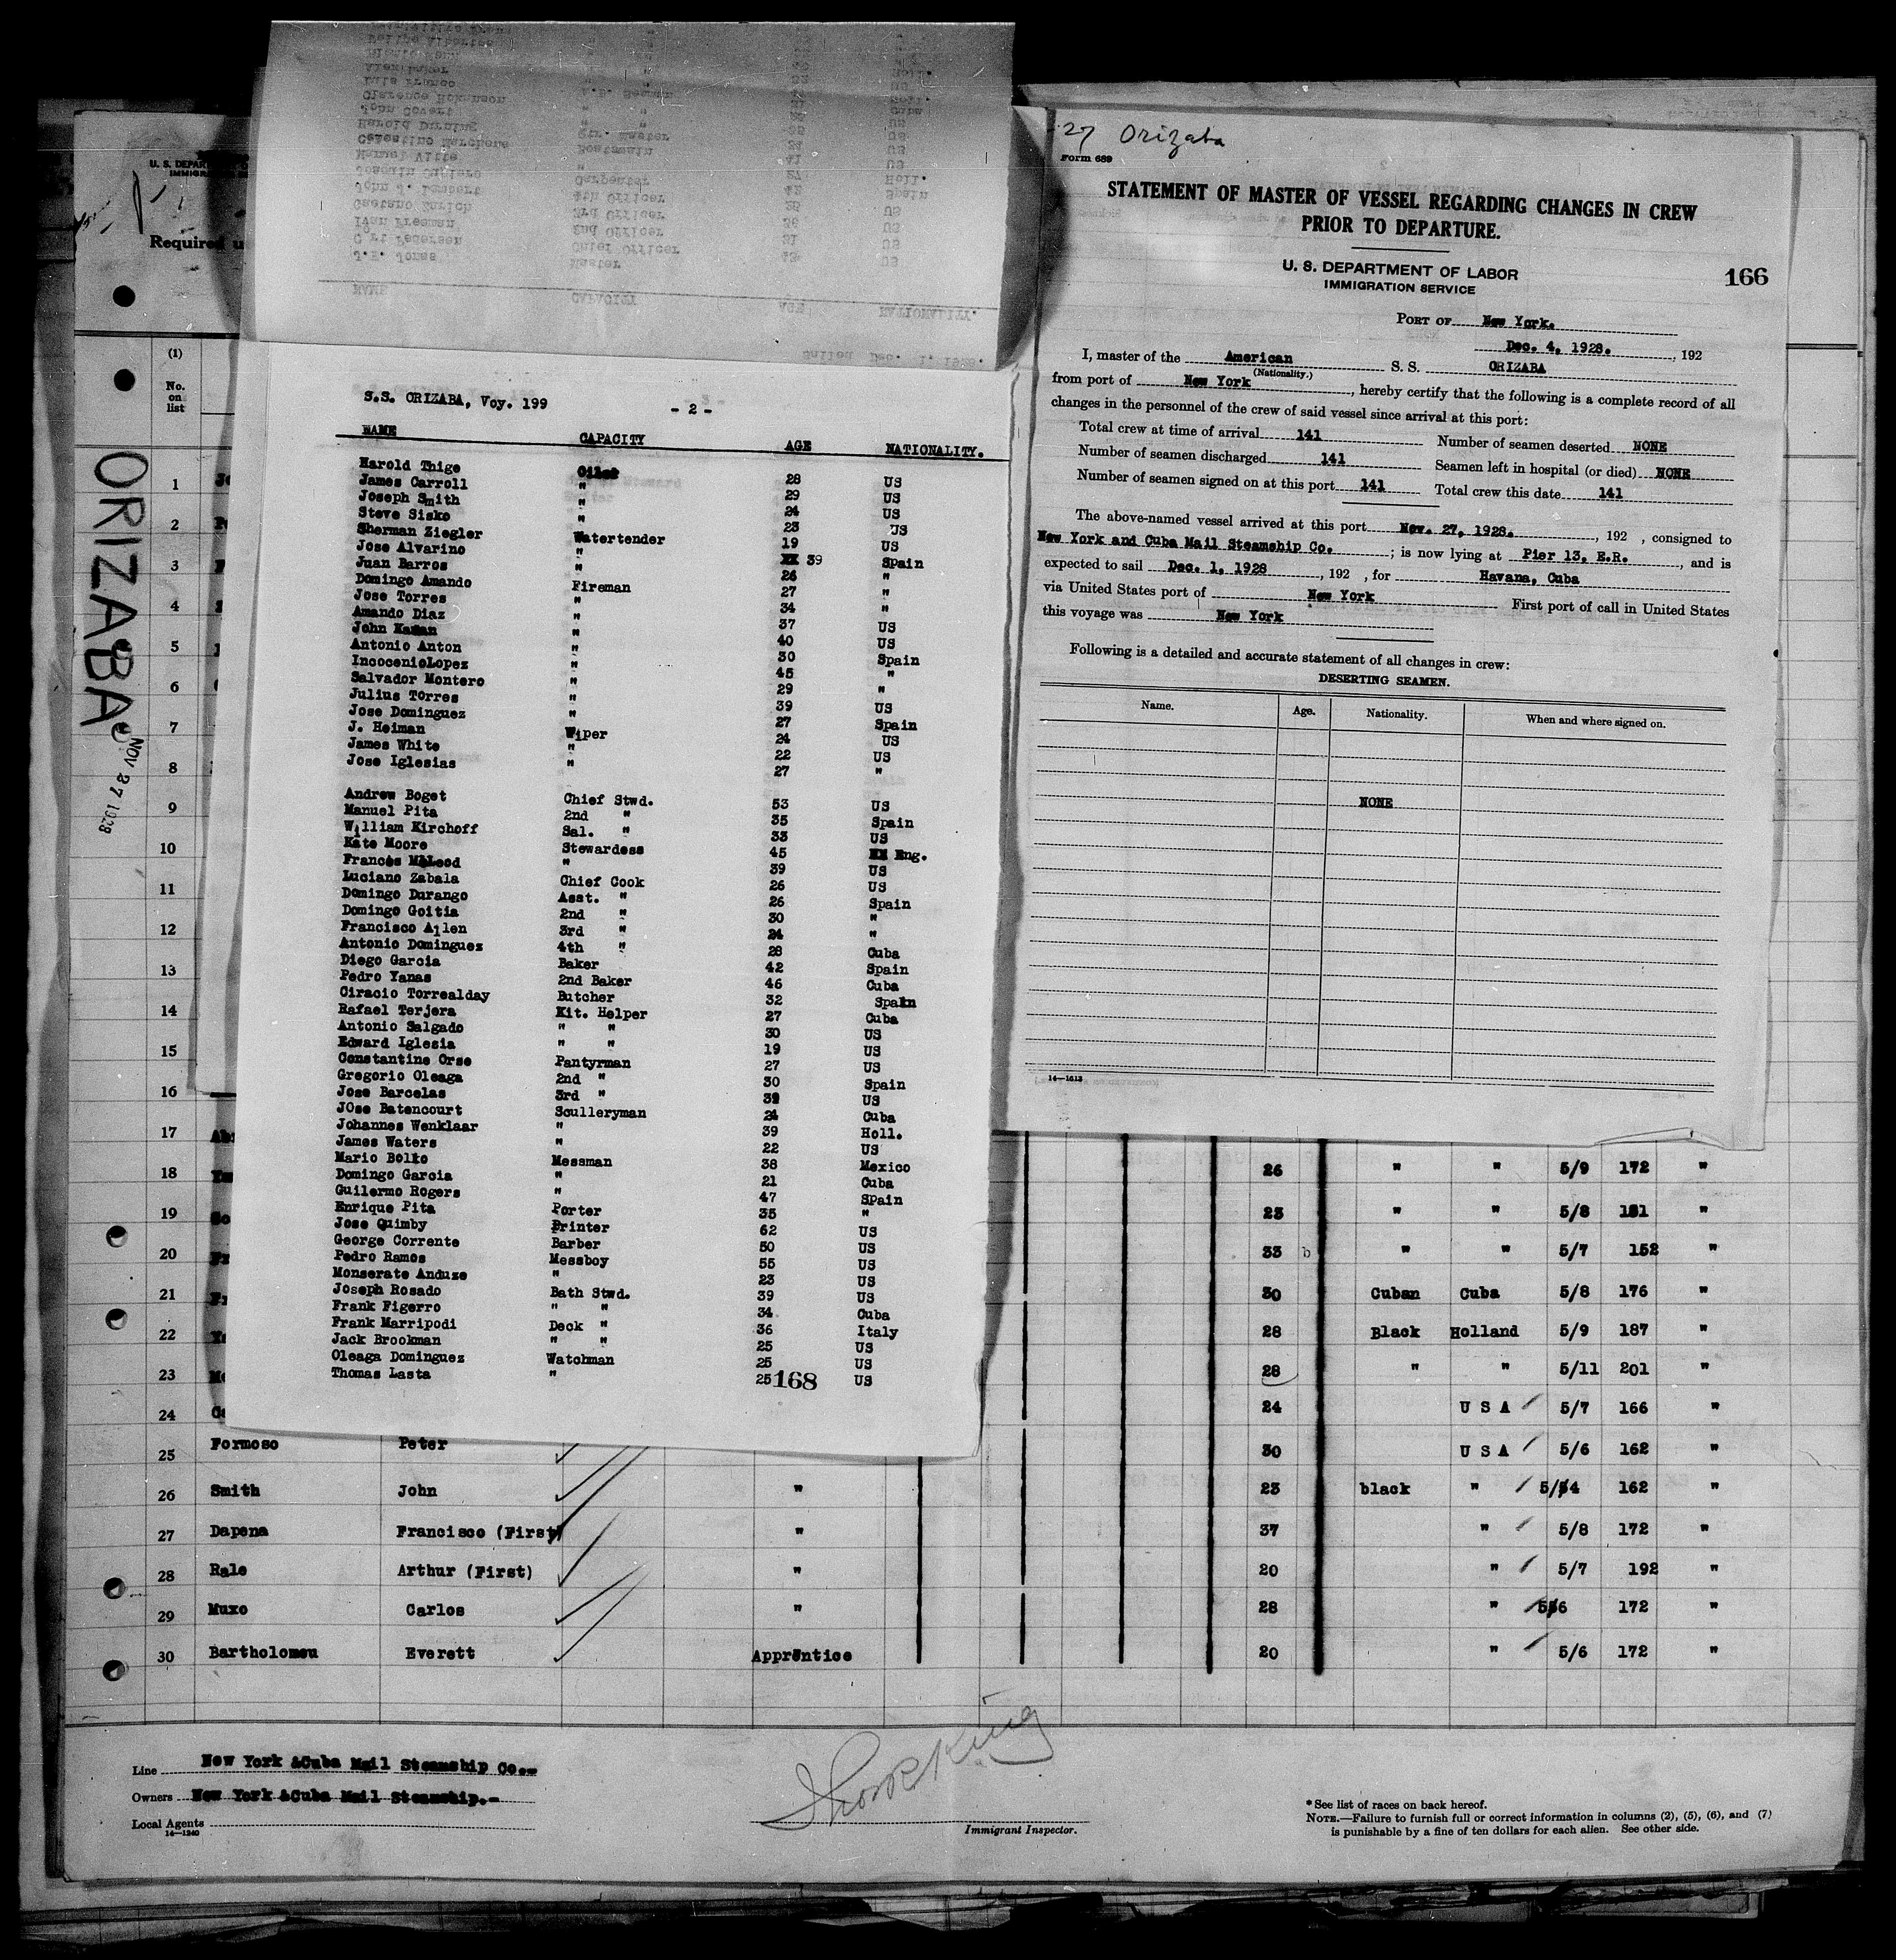 U. S. DEPAR
IMMIG
Required u
(1)
No.
on
list
ORIZABA
NOV 27 1928
J. E. Jones Master US
Chief Officer 31 US
Ivan Freeman 2nd Officer 36 US
Gaetano Zurich 3rd Officer US
John J. Lambert 4th Officer 42 Spain
Carpenter 27 Holl.
Manuel Vitte " 41 US
Celestino Marchere Boatswain US
Harold Durning Qr. Master US
John Covert " " Cuba
NAME CAPACITY AGE NATIONALITY.
Sailed Dec. 1, 1928.
S.S. ORIZABA, Voy. 199 - 2 -
NAME CAPACITY AGE NATIONALITY.
Harold Thige Oiler 28 US
James Carroll " 29 US
Joseph Smith " 24 US
Steve Sisko " 23 US
Sherman Ziegler Watertender 19 US
Jose Alvarino " 39 Spain
Juan Barros " 26 "
Domingo Amando Fireman 27 "
Jose Torres " 34 "
Amando Diaz " 37 US
John Kaman " 40 US
Antonio Anton " 30 Spain
IncocenioLopez " 45 "
Salvador Montero " 29 "
Julius Torres " 39 US
Jose Dominguez " 27 Spain
J. Heiman Wiper 24 US
James White " 22 US
Jose Iglesias " 27 "
Andrew Boget Chief Stwd. 53 US
Manuel Pita 2nd " 35 Spain
William Kirchoff Sal. " 33 US
Kate Moore Stewardess 45 Eng.
Frances McLeod " 39 US
Luciano Zabala Chief Cook 26 US
Domingo Durango Asst. " 26 Spain
Domingo Goitia 2nd " 30 "
Francisco Allen 3rd " 24 "
Antonio Dominguez 4th " 28 Cuba
Diego Garcia Baker 42 Spain
Pedro Yanas 2nd Baker 46 Cuba
Ciracio Torrealday Butcher 32 Spain
Rafael Terjera Kit. Helper 27 Cuba
Antonio Salgado " " 30 US
Edward Iglesia " " 19 US
Constantine Orse Pantyrman 27 US
Gregorio Oleaga 2nd " 30 Spain
Jose Barcelas 3rd " 39 US
JOse Batencourt Sculleryman 24 Cuba
Johannes Wenklaar " 39 Holl.
James Waters " 22 US
Mario Bolto Messman 38 Mexico
Domingo Garcia " 21 Cuba
Guilermo Rogers " 47 Spain
Enrique Pita Porter 35 "
Jose Quimby Printer 62 US
George Corrente Barber 50 US
Pedro Ramos Messboy 55 US
Monserate Anduze " 23 US
Joseph Rosado Bath Stwd. 39 US
Frank Figerro " " 34 Cuba
Frank Marripodi Deck " 36 Italy
Jack Brookman " " 25 US
Oleaga Dominguez Watchman 25 US
Thomas Lasta " 25 US
168
27 Orizaba
Form 689
STATEMENT OF MASTER OF VESSEL REGARDING CHANGES IN CREW
PRIOR TO DEPARTURE.
U. S. DEPARTMENT OF LABOR
IMMIGRATION SERVICE
166
PORT OF New York.
Dec. 4, 1928. , 192
I, master of the American S. S. ORIZABA
(Nationality.)
from port of New York , hereby certify that the following is a complete record of all
changes in the personnel of the crew of said vessel since arrival at this port:
Total crew at time of arrival 141 Number of seamen deserted NONE
Number of seamen discharged 141 Seamen left in hospital (or died) NONE
Number of seamen signed on at this port 141 Total crew this date 141
The above-named vessel arrived at this port Nov. 27, 1928. , 192 , consigned to
New York and Cuba Mail Steamship Co. ; is now lying at Pier 13, E.R. , and is
expected to sail Dec. 1, 1928 , 192 , for Havana, Cuba
via United States port of New York First port of call in United States
this voyage was New York
Following is a detailed and accurate statement of all changes in crew:
DESERTING SEAMEN.
Name. Age. Nationality. When and where signed on.
NONE
14—1613
1
2
3
4
5
6
7
8
9
10
11
12
13
14
15
16
17
18 26 " " 5/9 172 "
19 23 " " 5/8 181 "
20 33 b " " 5/7 152 "
21 30 Cuban Cuba 5/8 176 "
22 28 Black Holland 5/9 187 "
23 28 " " 5/11 201 "
24 24 U S A 5/7 166 "
25 Formoso Peter 30 U S A 5/6 162 "
26 Smith John " 23 black " 5/4 162 "
27 Dapena Francisco (First) " 37 " 5/8 172 "
28 Rale Arthur (First) " 20 " 5/7 192 "
29 Muxo Carlos " 28 " 5/6 172 "
30 Bartholomeu Everett Apprentice 20 " 5/6 172 "
Line New York &Cuba Mail Steamship Co.-
Owners New York &Cuba Mail Steamship.-
Local Agents
14—1240
Immigrant Inspector.
* See list of races on back hereof.
NOTE.—Failure to furnish full or correct information in columns (2), (5), (6), and (7)
is punishable by a fine of ten dollars for each alien. See other side.